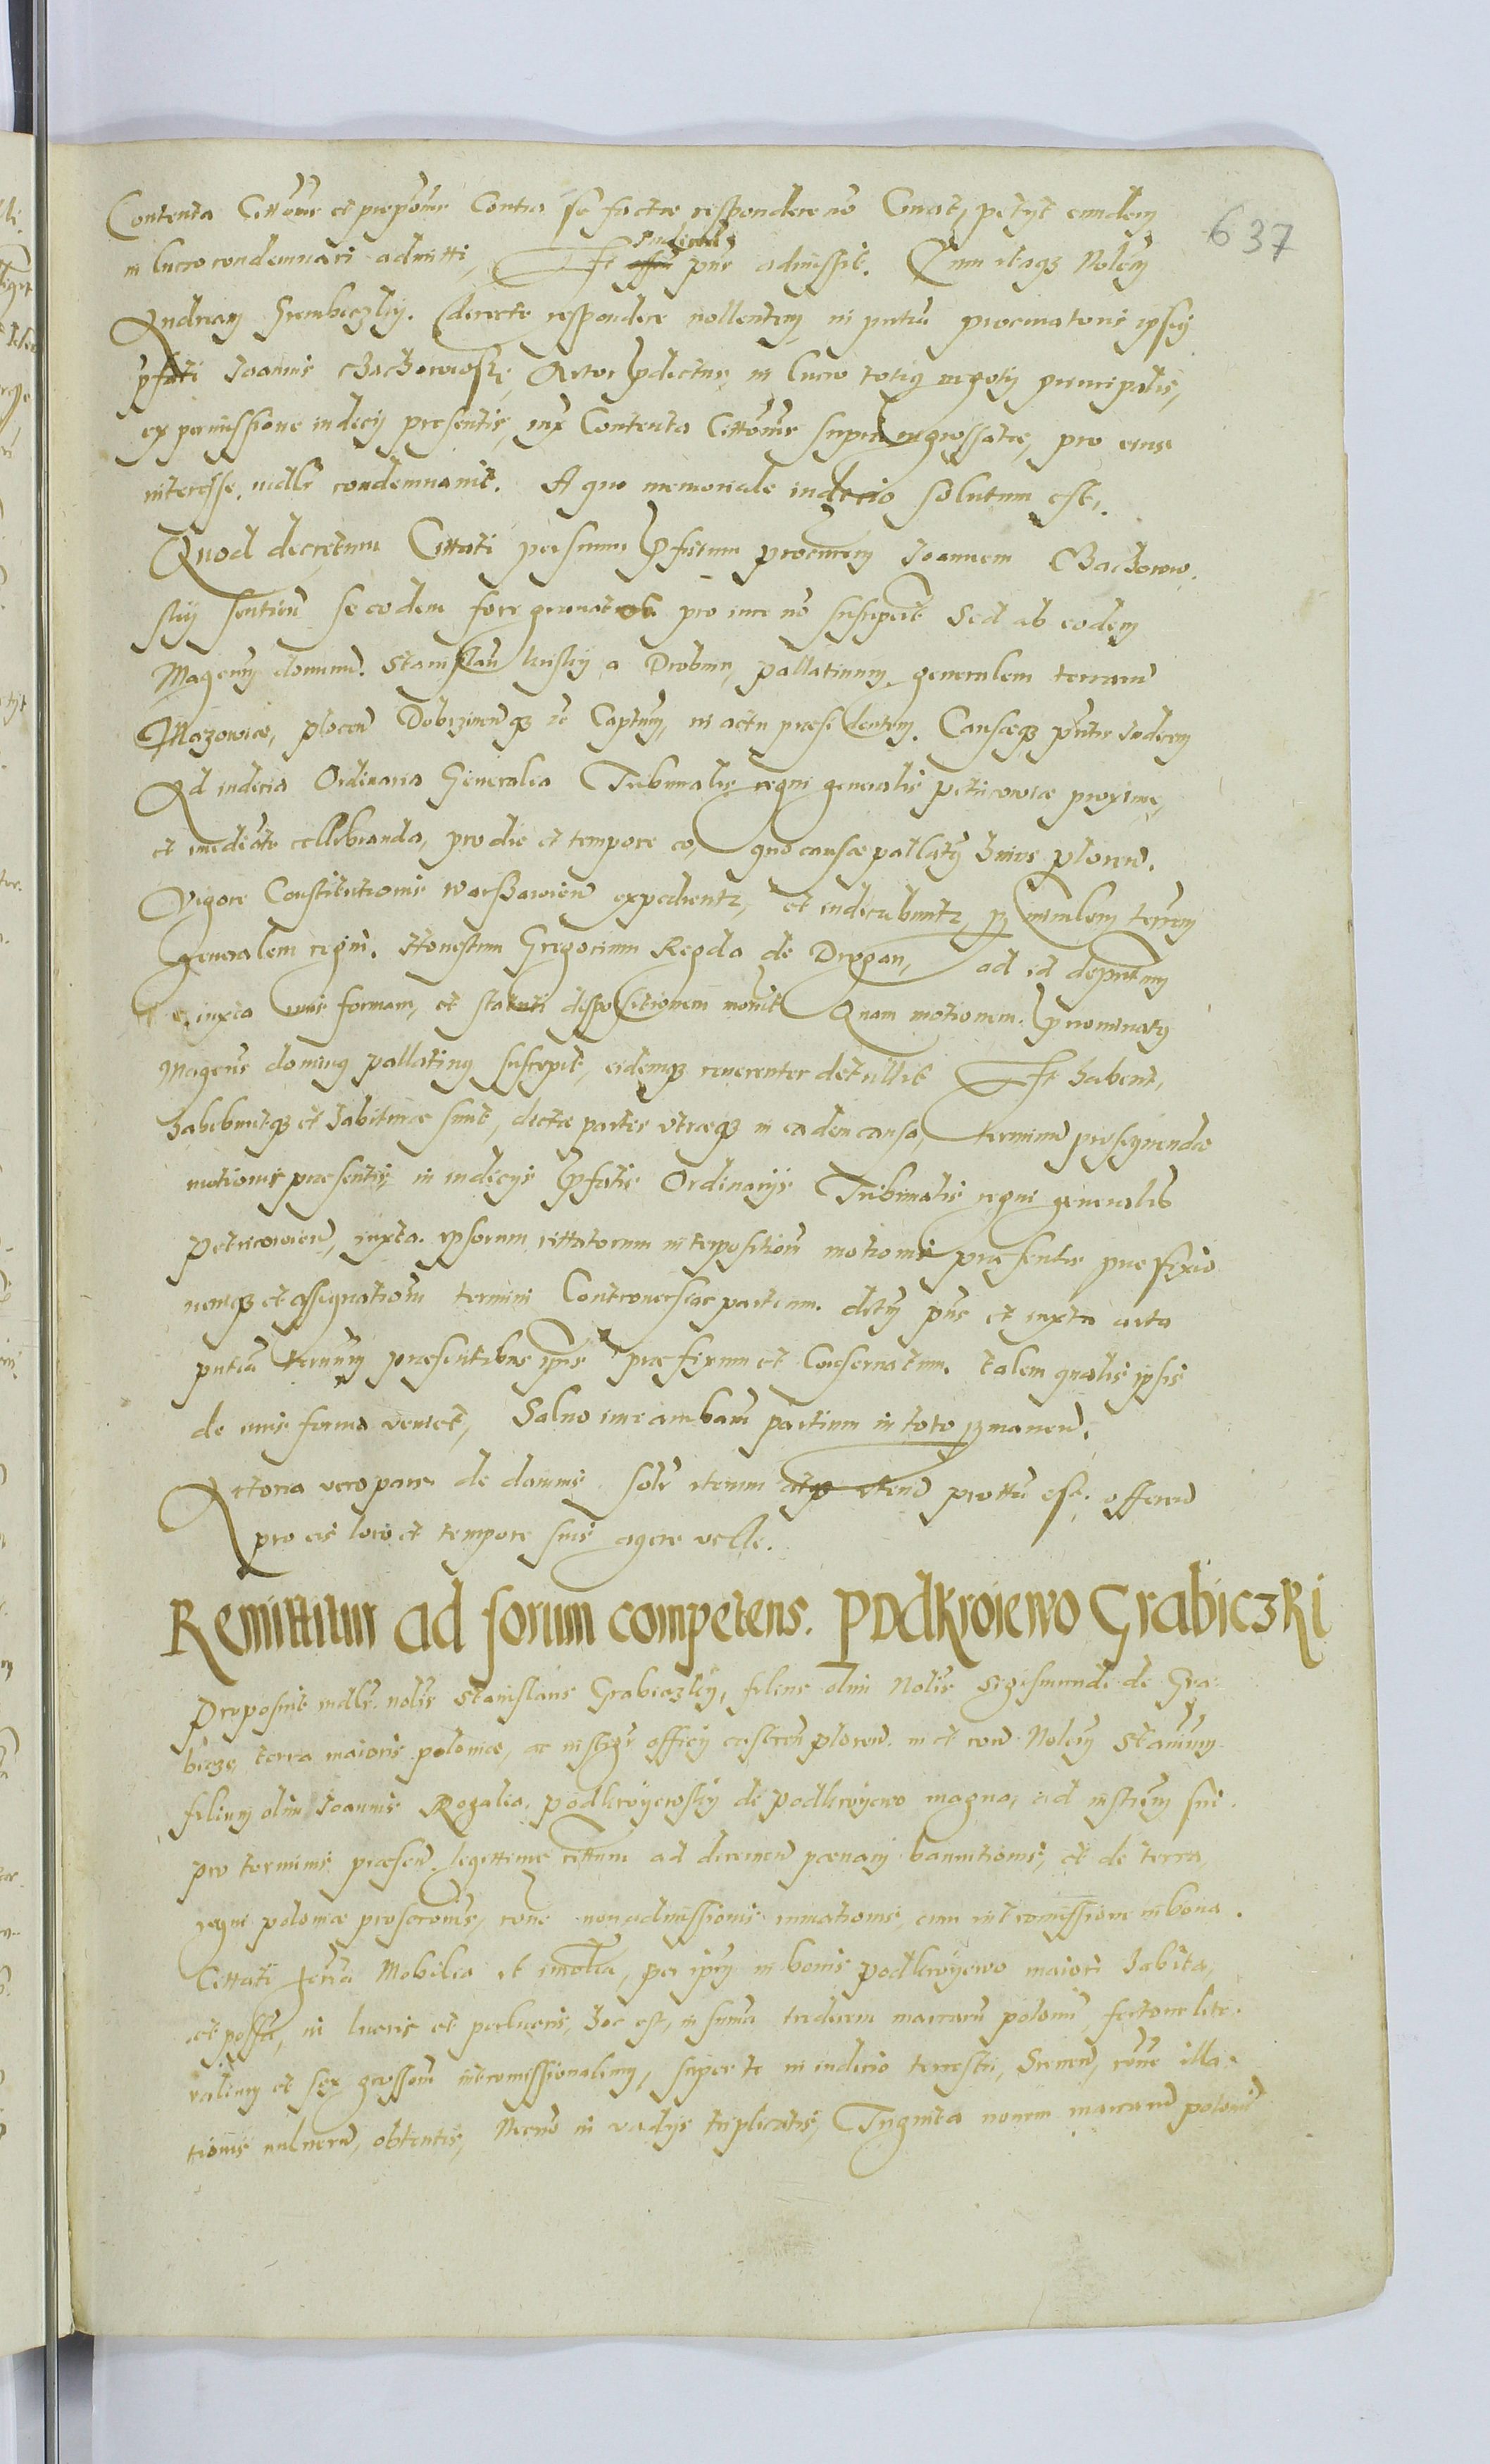 637
Contenta Cittōnis et prop̄onis Contra se factæ respondere nō Curat, petyt eundem
in lucro condemnari admitti, Et Judiciū pn̄s admissit. Cum itaqȝ Nobīlem
Andream Srembeczky. directe respondere nollentem in pn̄tia procuratoris ipsiq
pfati Joannis Chaczorowsky, Actor p̄dictus in lucro totiq negotij principalis,
ex permissione iudicij presentis, iux Contenta Cittōnis supra ingrossatæ, pro eius
interesse, iudlr condemnauit. A quo memoriale iudicio solutum est,
Quod decretum Cittati personu p̄fatum procurem Joannem Chaczorow,
sky sentien̄ se eodem fore grauatos pro iure nō suscipit Sed ab eodem
Magcum dominū. Stanislau Krisky a Drobnin, pallatinum generalem terrarum
Mazowiæ, plocen̄ Dobrzinenqȝ ac Captm̄, in actu præsidentem, Causæqȝ pn̄tis Judicem
Ad iudicia Ordinaria Generalia Tribunalis regni generalis petricowiæ proxime,
et im̄ediate cellebranda, pro die et tempore eo, quo causæ pallatq huius plocen̄.
Vigore Constitutionis warszawien̄ expedientr, et iudicabuntr, p mīnlem terrem
generalem regni. Honestum Gregorium Regda de Drogan, ad id deputm
iuxta iuris formam, et statuti dispositionem mouit Quam motionem p̄nominatq
Magcus dominq pallatinq suscepit, eidemqȝ reuerenter detullit Et habent,
habebuntqȝ et habituræ sunt, dictæ partes vtræqȝ in eadem causa, terminū prosequendæ
motionis præsentis, in iudicijs p̄fatis Ordinarijs Tribunalis regni generalis
Petricowien̄, iuxta ipsorum cittatorum interpositionē motionis præsentis præfixio
nemqȝ et assignationē termini Controuersiæ partium. ditq pn̄s et iuxta acta
pn̄tia terminū præsentibus ip̄is præfixum et Conseruatum. talem qualis ipsis
de iuris forma veniet, Saluo iure ambarū partium in toto pmanen̄.
Actorea vero pars de damnis solr iterum prottū est. offeren̄
pro eis loco et tempore suis agere velle.
Remittitur ad forum competens. Podkroiewo Grabiczki
Proposuit iudlr nobīlis Stanislaus Grabiczky, filius olim Nobīlis Sigismundi de Gra
bicze, terra maioris poloniæ, ac instigr officij castren̄ plocen̄. in et con̄ Nobīlem Stanium
filium olim Joannis Rogalia, podkroyewsky de podkroyewo magna, ad instiam sui
pro terminis præsen̄. legittime cittum ad dicernen̄ pœnam bannitionis, et de terra
regni poloniæ proscronis, rōne non admissionis inuationis, cum intromissione in bona.
Cittati Mobilia et imobīlia, per ipm̄ in bonis podkroyewo maiori habita,
et possa, in lucris et perlucris, hoc est, in summa tredecim marcarū poloni, fertone lite
ralium et sex grossorū intromissionalium, super te in iudicio terrestri, Srenen̄, rōne illa
tionis vulnerū, obtentis, Necnō in vadijs triplicatis, Triginta nouem marcarū poloni